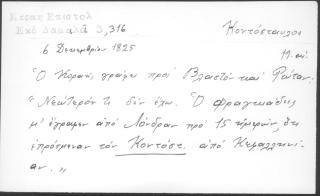 Κοραη Επιστολ
Εκδ Δαμαλά 3,316
Κοντόσταυλος
6 Δεκεμβρίου 1825
11. οι.
Ὁ Κοραής γράφει πρὸς Βλαστὸν καὶ Ρώταν.
"Νεώτερόν τι δὲν ἔχω. Ὁ Φραγκιάδης
μ' ἔγραφεν ἀπὸ Λόνδραν πρὸ 15 ἡμερῶν, ὅτι
ἐπρόσμεναν τὸν Κοντόστ. ἀπὸ Κεφαλληνί-
αν."